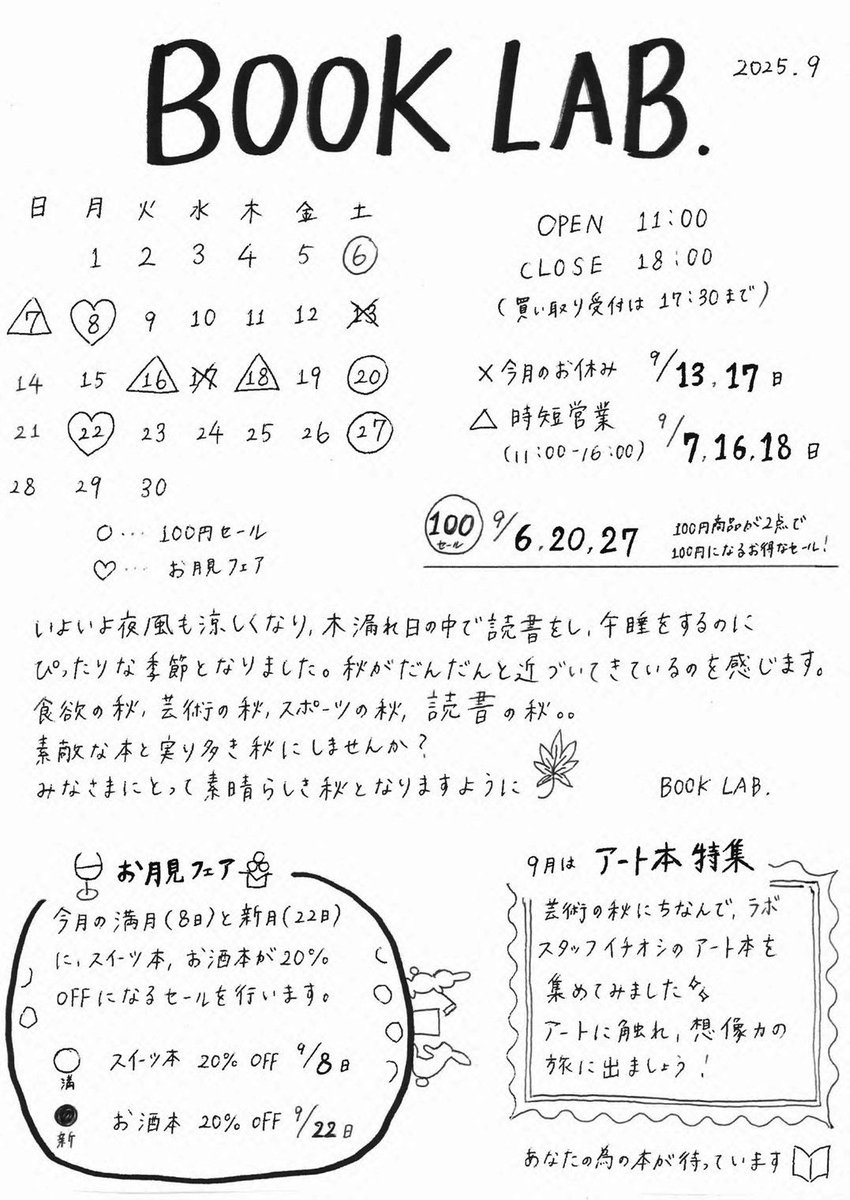 BOOK LAB.
2025.9
日 月 火 水 木 金 土
1 2 3 4 5 6
7 8 9 10 11 12 13
14 15 16 17 18 19 20
21 22 23 24 25 26 27
28 29 30
○… 100円セール
♡… お月見フェア
OPEN 11:00
CLOSE 18:00
(買い取り受付は 17:30まで)
×今月のお休み 9/13,17日
△時短営業 9/7,16,18日
(11:00-16:00)
100セール 9/6,20,27
100円商品が2点で
100円になるお得なセール!
いよいよ夜風も涼しくなり,木漏れ日の中で読書をし,午睡をするのに
ぴったりな季節となりました。秋がだんだんと近づいてきているのを感じます。
食欲の秋,芸術の秋,スポーツの秋,読書の秋。。
素敵な本と実り多き秋にしませんか?
みなさまにとって素晴らしき秋となりますように
BOOK LAB.
お月見フェア
今月の満月(8日)と新月(22日)
に,スイーツ本,お酒本が20%
OFFになるセールを行います。
満 スイーツ本 20% OFF 9/8日
新 お酒本 20% OFF 9/22日
9月は アート本 特集
芸術の秋にちなんで,ラボ
スタッフイチオシのアート本を
集めてみました
アートに触れ,想像力の
旅に出ましょう!
あなたの為の本が待っています